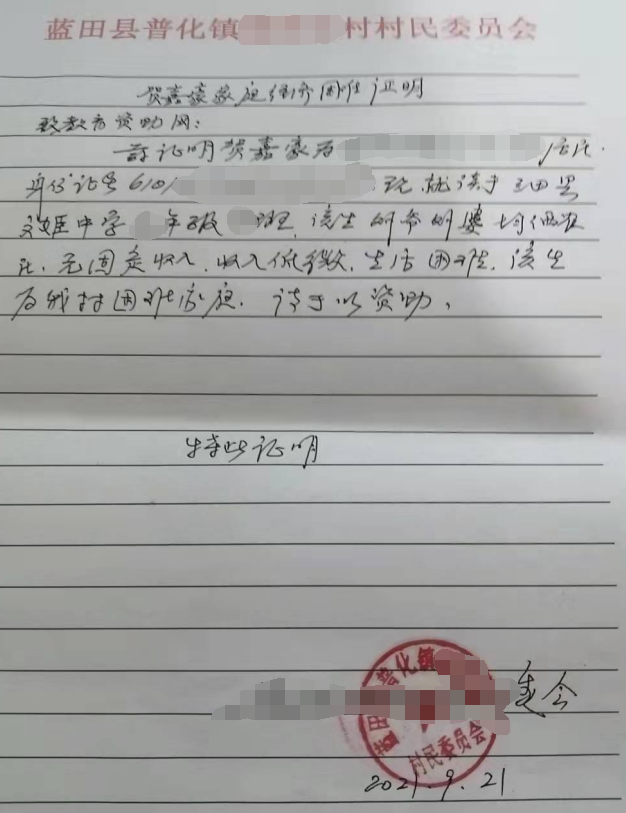 蓝田县普化镇 村村民委员会
贺嘉豪家庭经济困难证明
致教育资助网：
兹证明贺嘉豪为 居民.
身份证号 6101 现就读于 蓝田县
文姬中学 年级 班, 该生的爸的妈均
无固定收入, 收入低微, 生活困难, 该生
为我村困难家庭. 请予以资助.
特此证明
蓝田县普化镇
村民委员会
委会
2021.9.21